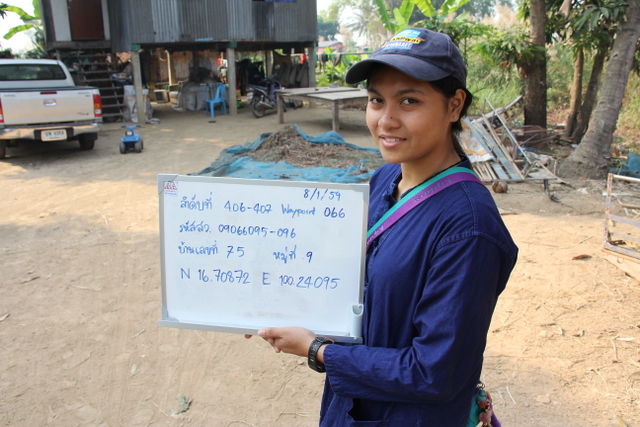 8/1/59
ลำดับที่ 406-407 Waypoint 066
รหัสสว. 09066095-096
บ้านเลขที่ 75 หมู่ที่ 9
N 16.70872 E 100.24095